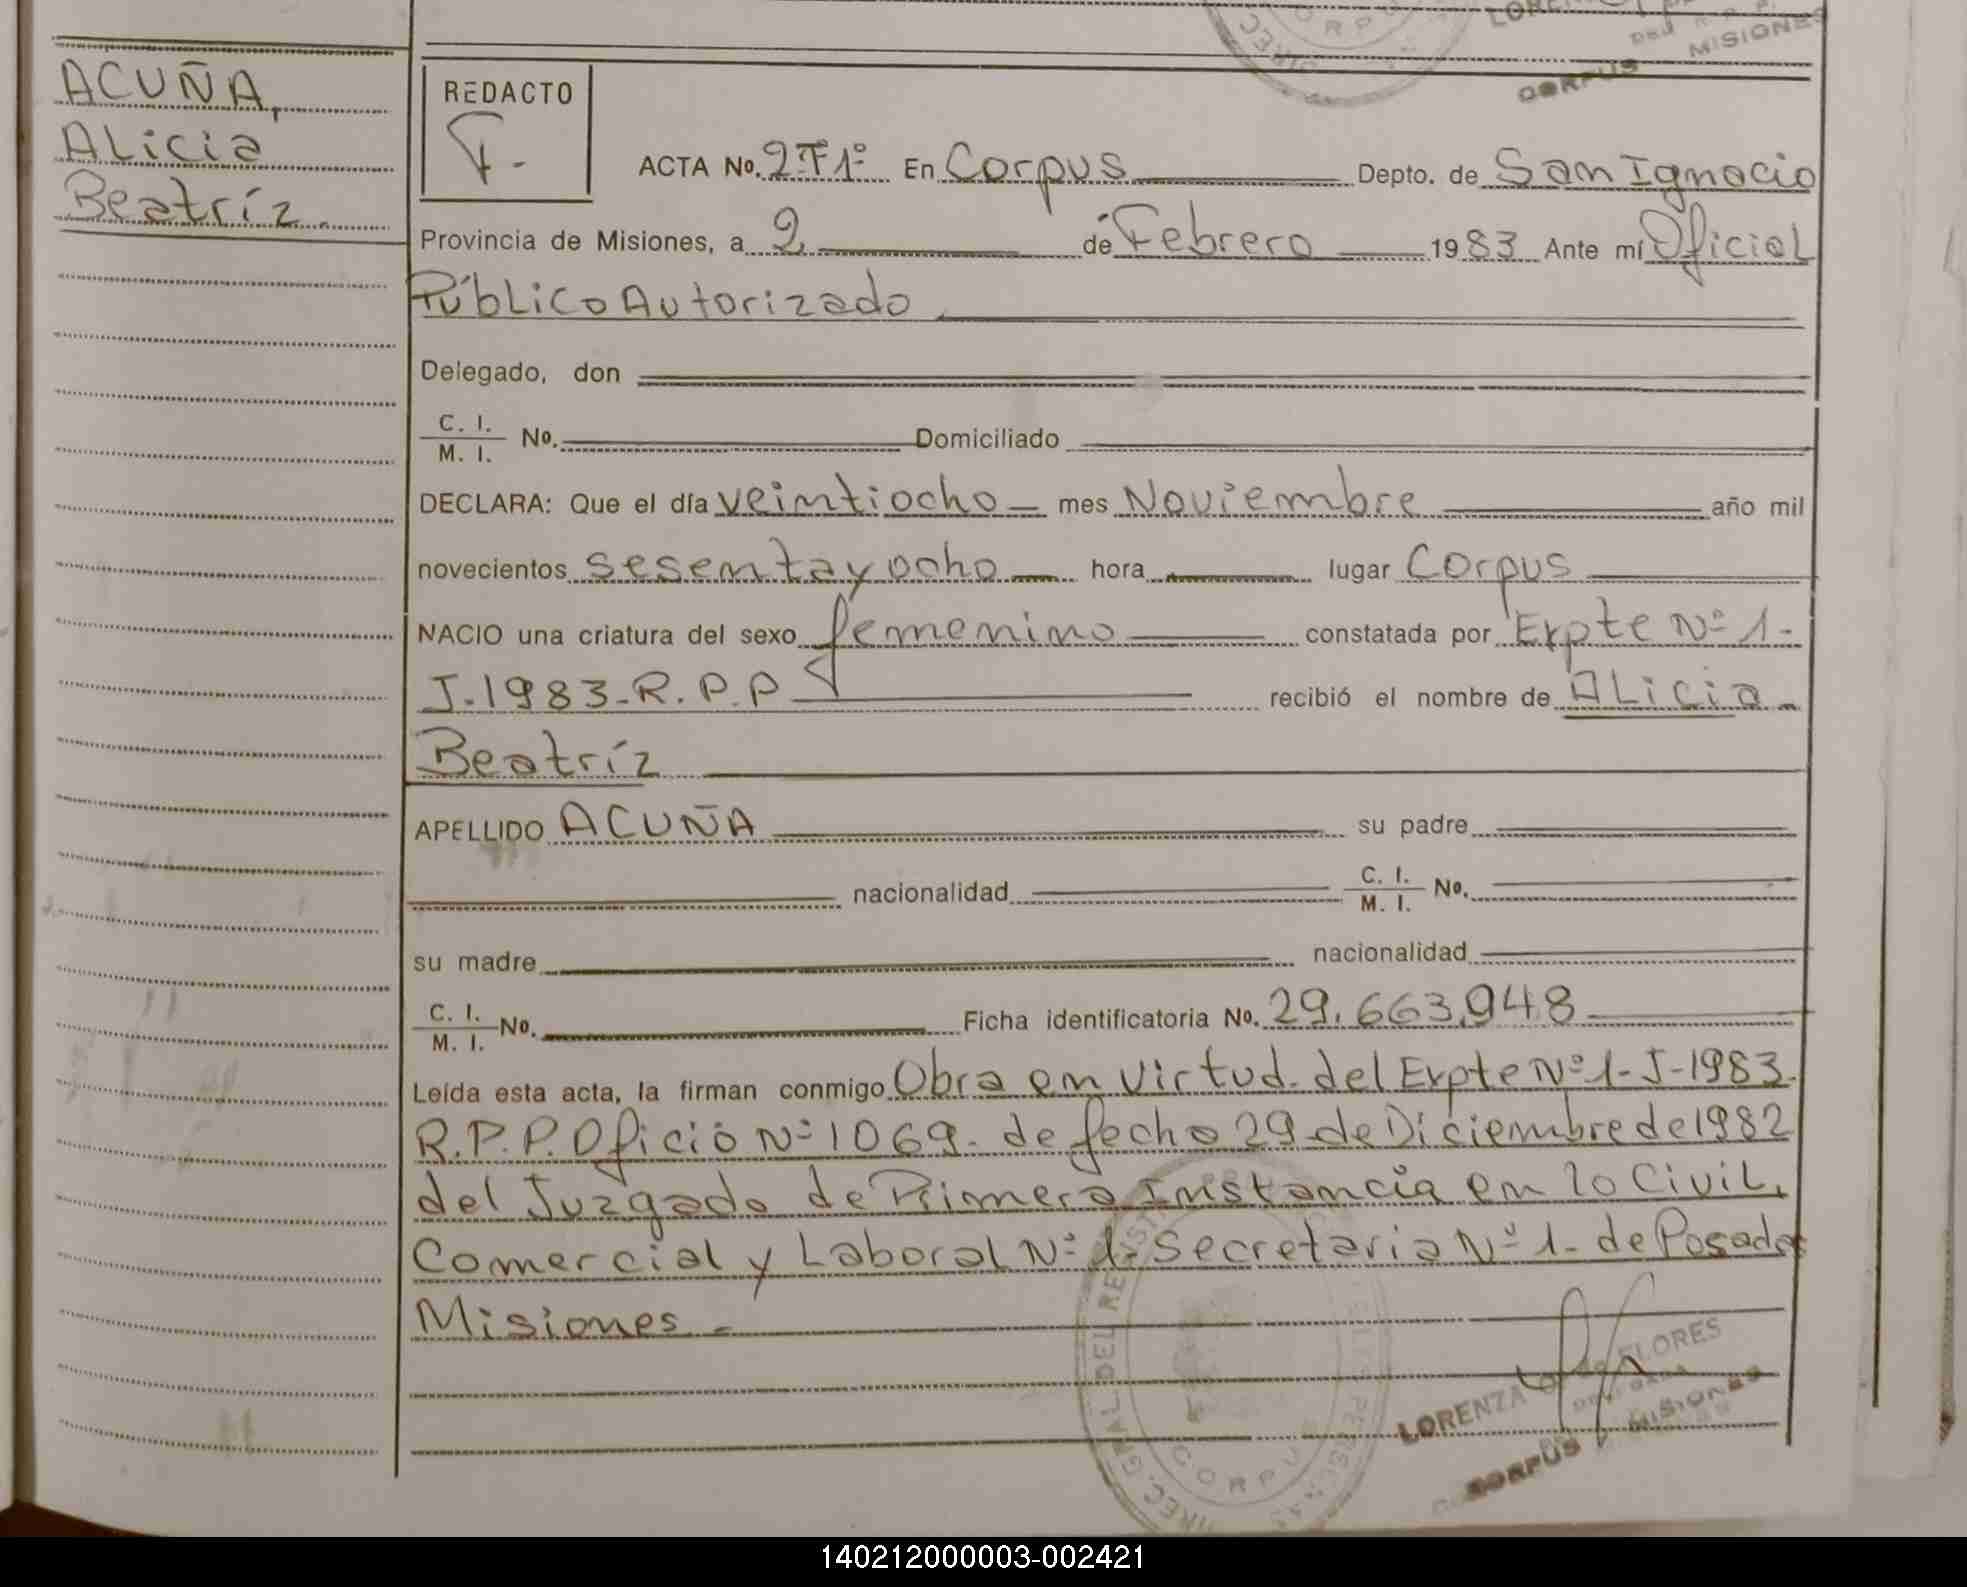 ACUÑA,
ALicia
Beatríz.
REDACTO
F.-
ACTA No. 2-T1º En Corpus Depto. de San Ignacio
Provincia de Misiones, a 2 de Febrero 1983 Ante mí Oficial
Público Autorizado
Delegado, don
C. I.
M. I. No. Domiciliado
DECLARA: Que el día veintiocho mes Noviembre año mil
novecientos sesenta y ocho hora lugar Corpus
NACIO una criatura del sexo femenino constatada por Expte Nº 1-
J-1983-R.P.P recibió el nombre de ALicia
Beatríz
APELLIDO ACUÑA su padre
nacionalidad C. I.
M. I. No.
su madre nacionalidad
C. I.
M. I. No. Ficha identificatoria No. 29.663.948
Leída esta acta, la firman conmigo Obra en virtud del Expte Nº 1-J-1983-
R.P.P. Oficio Nº 1069- de fecha 29-de Diciembre de 1982
del Juzgado de Primera Instancia en lo Civil,
Comercial y Laboral Nº 1- Secretaria Nº 1- de Posadas
Misiones-
LORENZA FLORES
MISIONES
CORPUS
140212000003-002421